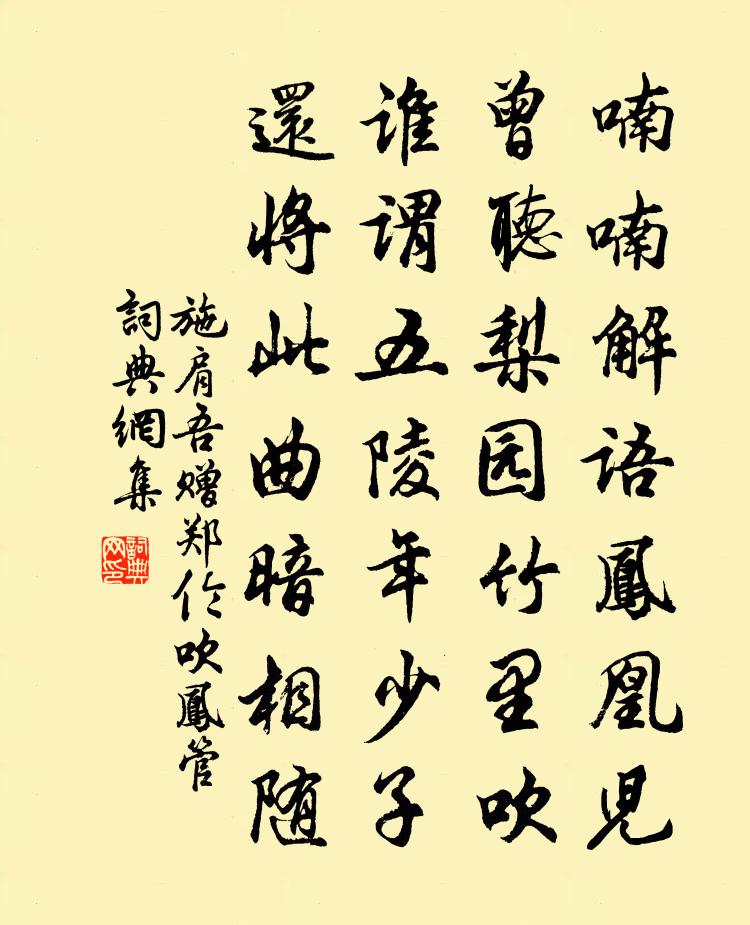 喃喃解语鳳凰児
曾聴梨园竹里吹
谁谓五陵年少子
還将此曲暗相随
施肩吾赠郑伦吹鳳管
詞典網集
詞典
网印